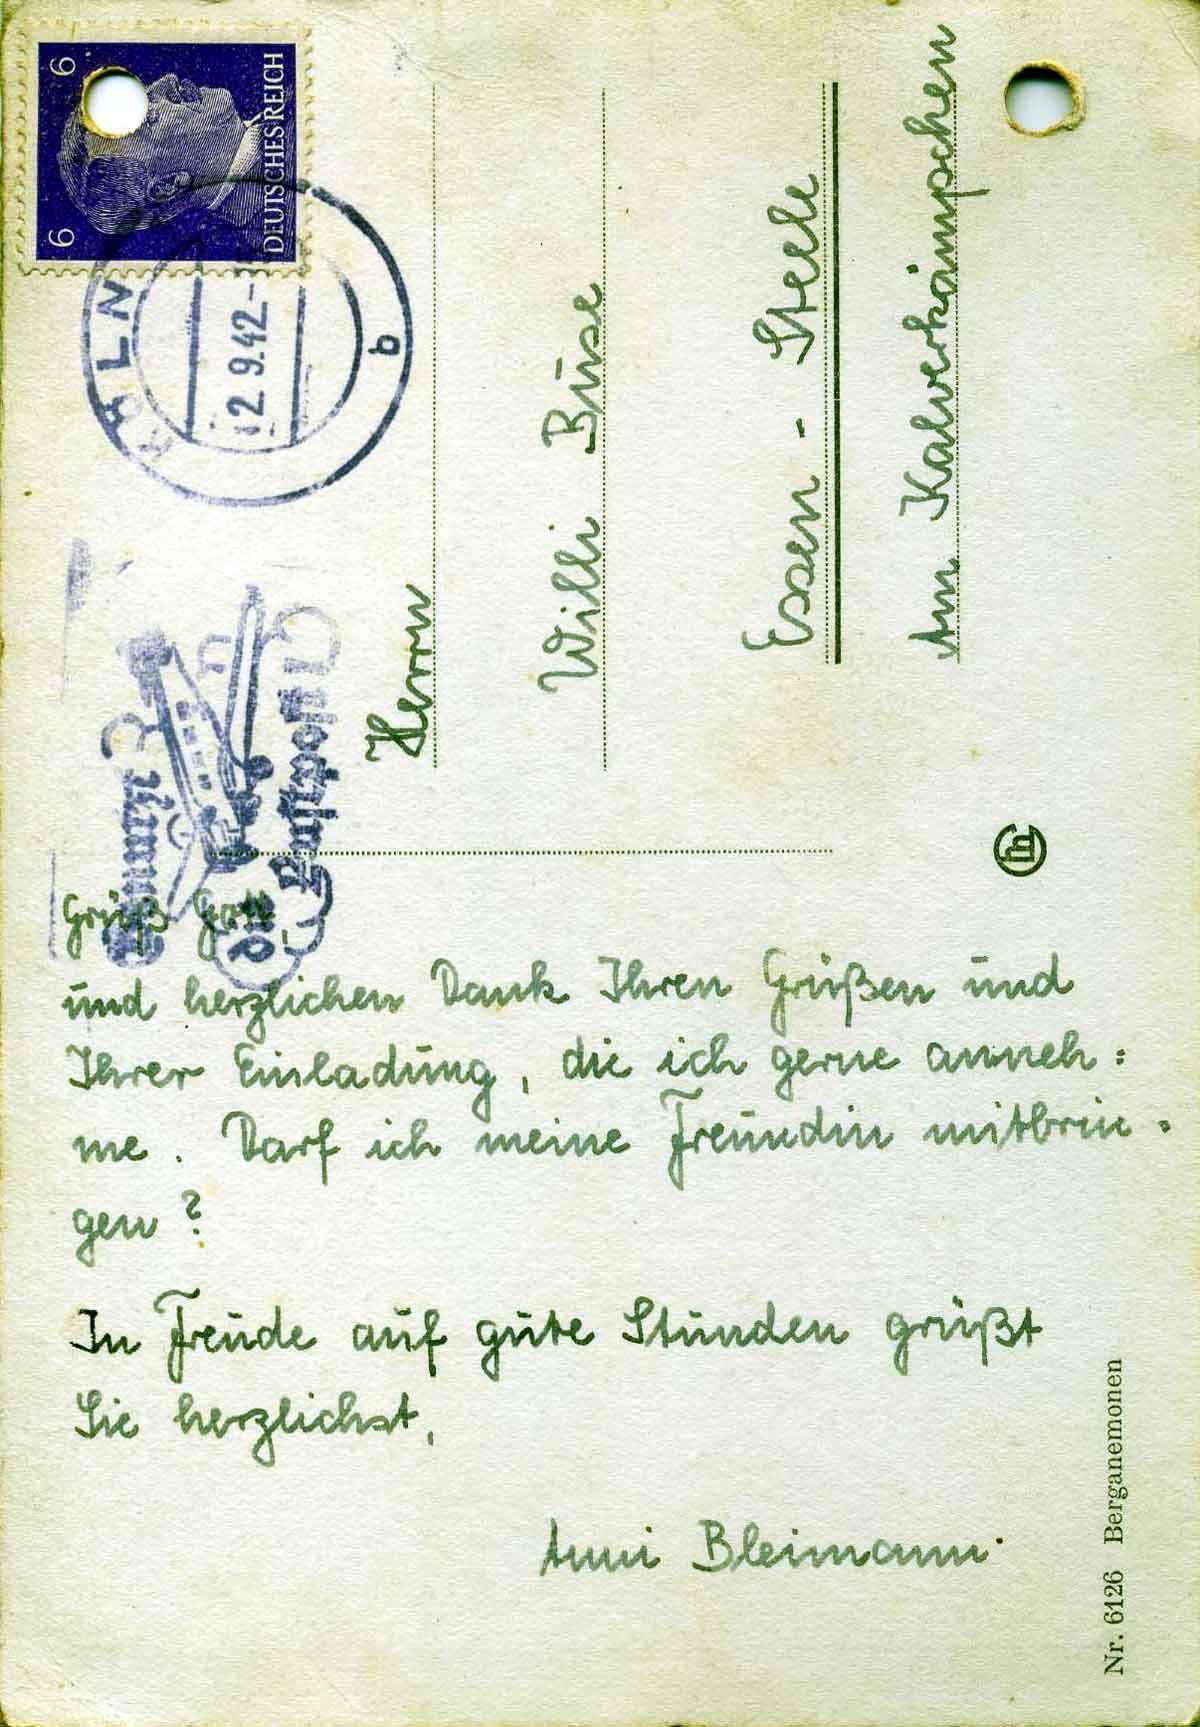 6 6
DEUTSCHES REICH
KÖLN
2.9.42
b
Benutzt
die
Luftpost
Herrn
Willi Buse
Essen - Steele
Am Kalverkämpchen
Grüß Gott,
und herzlichen Dank Ihren Grüßen und
Ihrer Einladung, die ich gerne anneh=
me. Darf ich meine Freundin mitbrin=
gen?
In Freude auf gute Stunden grüßt
Sie herzlichst,
Anni Bleimann.
Nr. 6126 Berganemonen